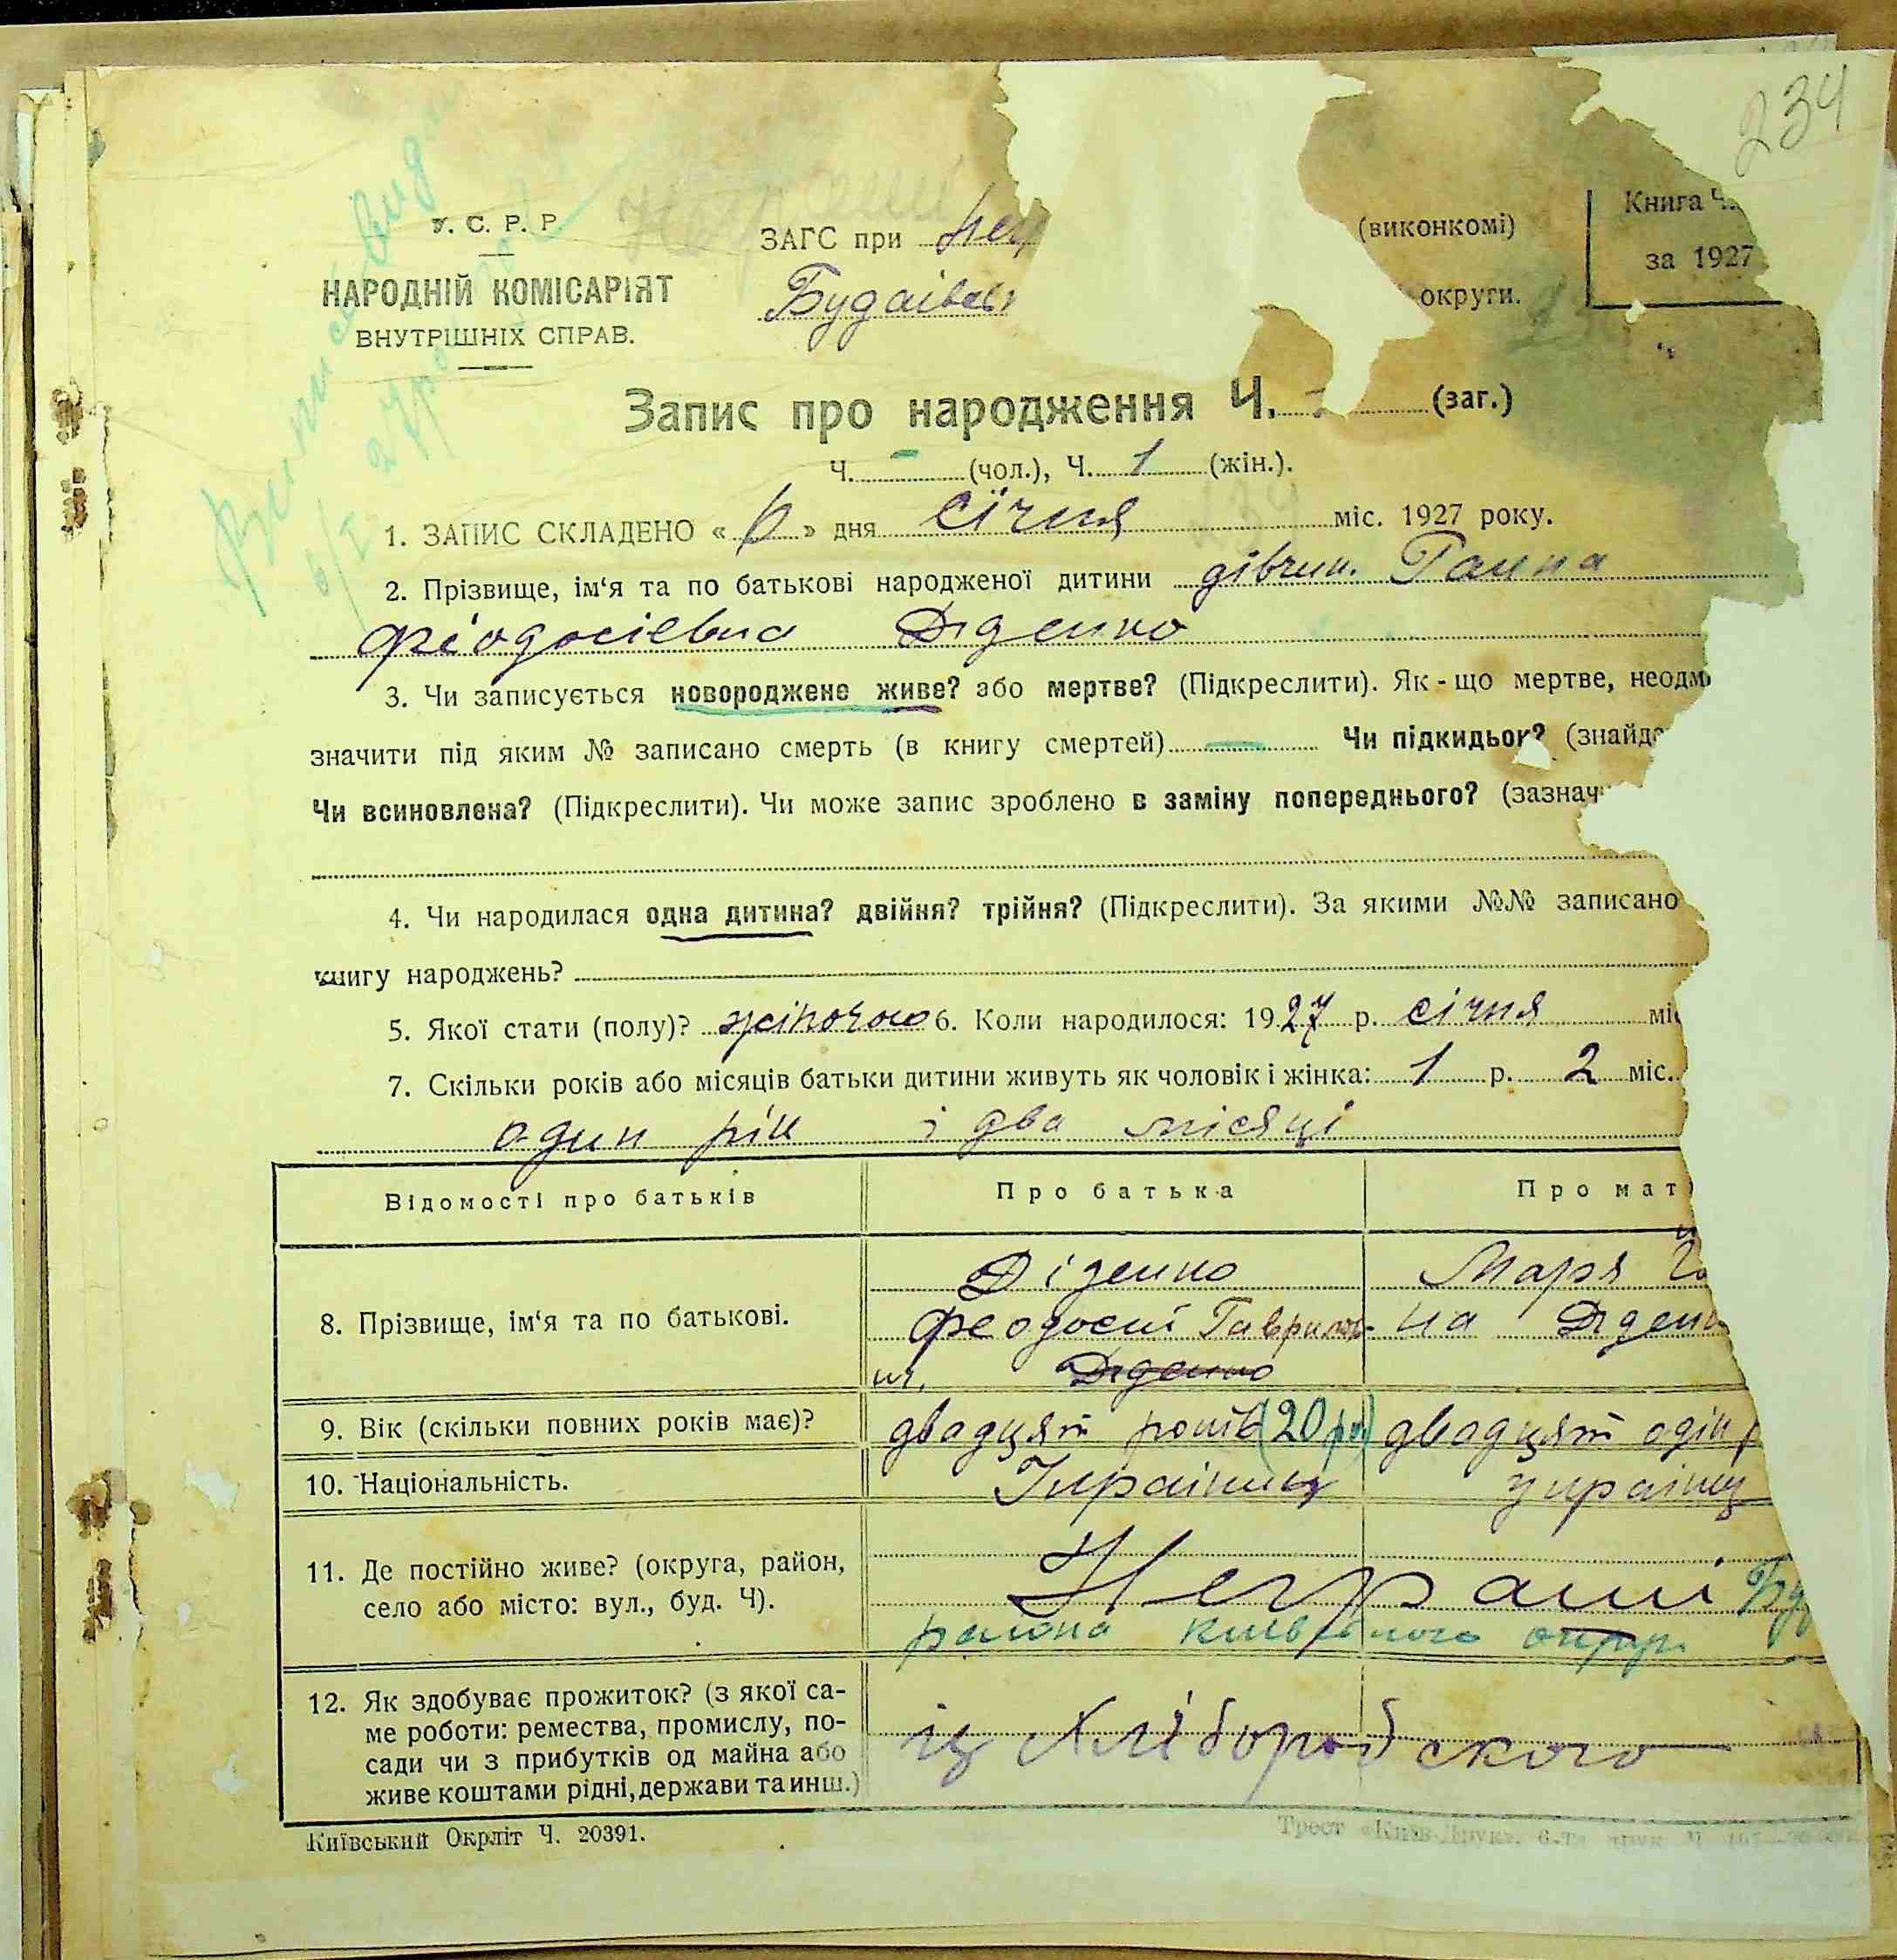 234
У. С. Р. Р.
НАРОДНІЙ КОМІСАРІЯТ
ВНУТРІШНІХ СПРАВ.
ЗАГС при Нег
(виконкомі)
Будаївсь
округи.
Книга Ч.
за 1927
Запис про народження Ч. (заг.)
Ч. — (чол.), Ч. 1 (жін.).
1. ЗАПИС СКЛАДЕНО « » дня січня міс. 1927 року.
2. Прізвище, ім'я та по батькові народженої дитини дівчин. Ганна
Феодосієвна Діденко
3. Чи записується новороджене живе? або мертве? (Підкреслити). Як-що мертве, неодм
значити під яким № записано смерть (в книгу смертей) — Чи підкидьок? (знайде
Чи всиновлена? (Підкреслити). Чи може запис зроблено в заміну попереднього? (зазнач
4. Чи народилася одна дитина? двійня? трійня? (Підкреслити). За якими №№ записано
книгу народжень?
5. Якої стати (полу)? жіночого 6. Коли народилося: 1927 р. січня міс
7. Скільки років або місяців батьки дитини живуть як чоловік і жінка: 1 р. 2 міс.
один рік і два місяці
Відомості про батьків
Про батька
Про мат
8. Прізвище, ім'я та по батькові.
Діденко
Феодосій Гаврилов-
ич. Діденко
Маря
на Діден
9. Вік (скільки повних років має)?
двадцят років (20 р.)
двадцят один р
10. Національність.
Українец
україн
11. Де постійно живе? (округа, район,
село або місто: вул., буд. Ч).
Неграші Буд
района Київського округи
12. Як здобуває прожиток? (з якої са-
ме роботи: ремества, промислу, по-
сади чи з прибутків од майна або
живе коштами рідні, держави та инш.)
із хліборобского
Київський Окрліт Ч. 20391.
Трест «Київ-Друк»